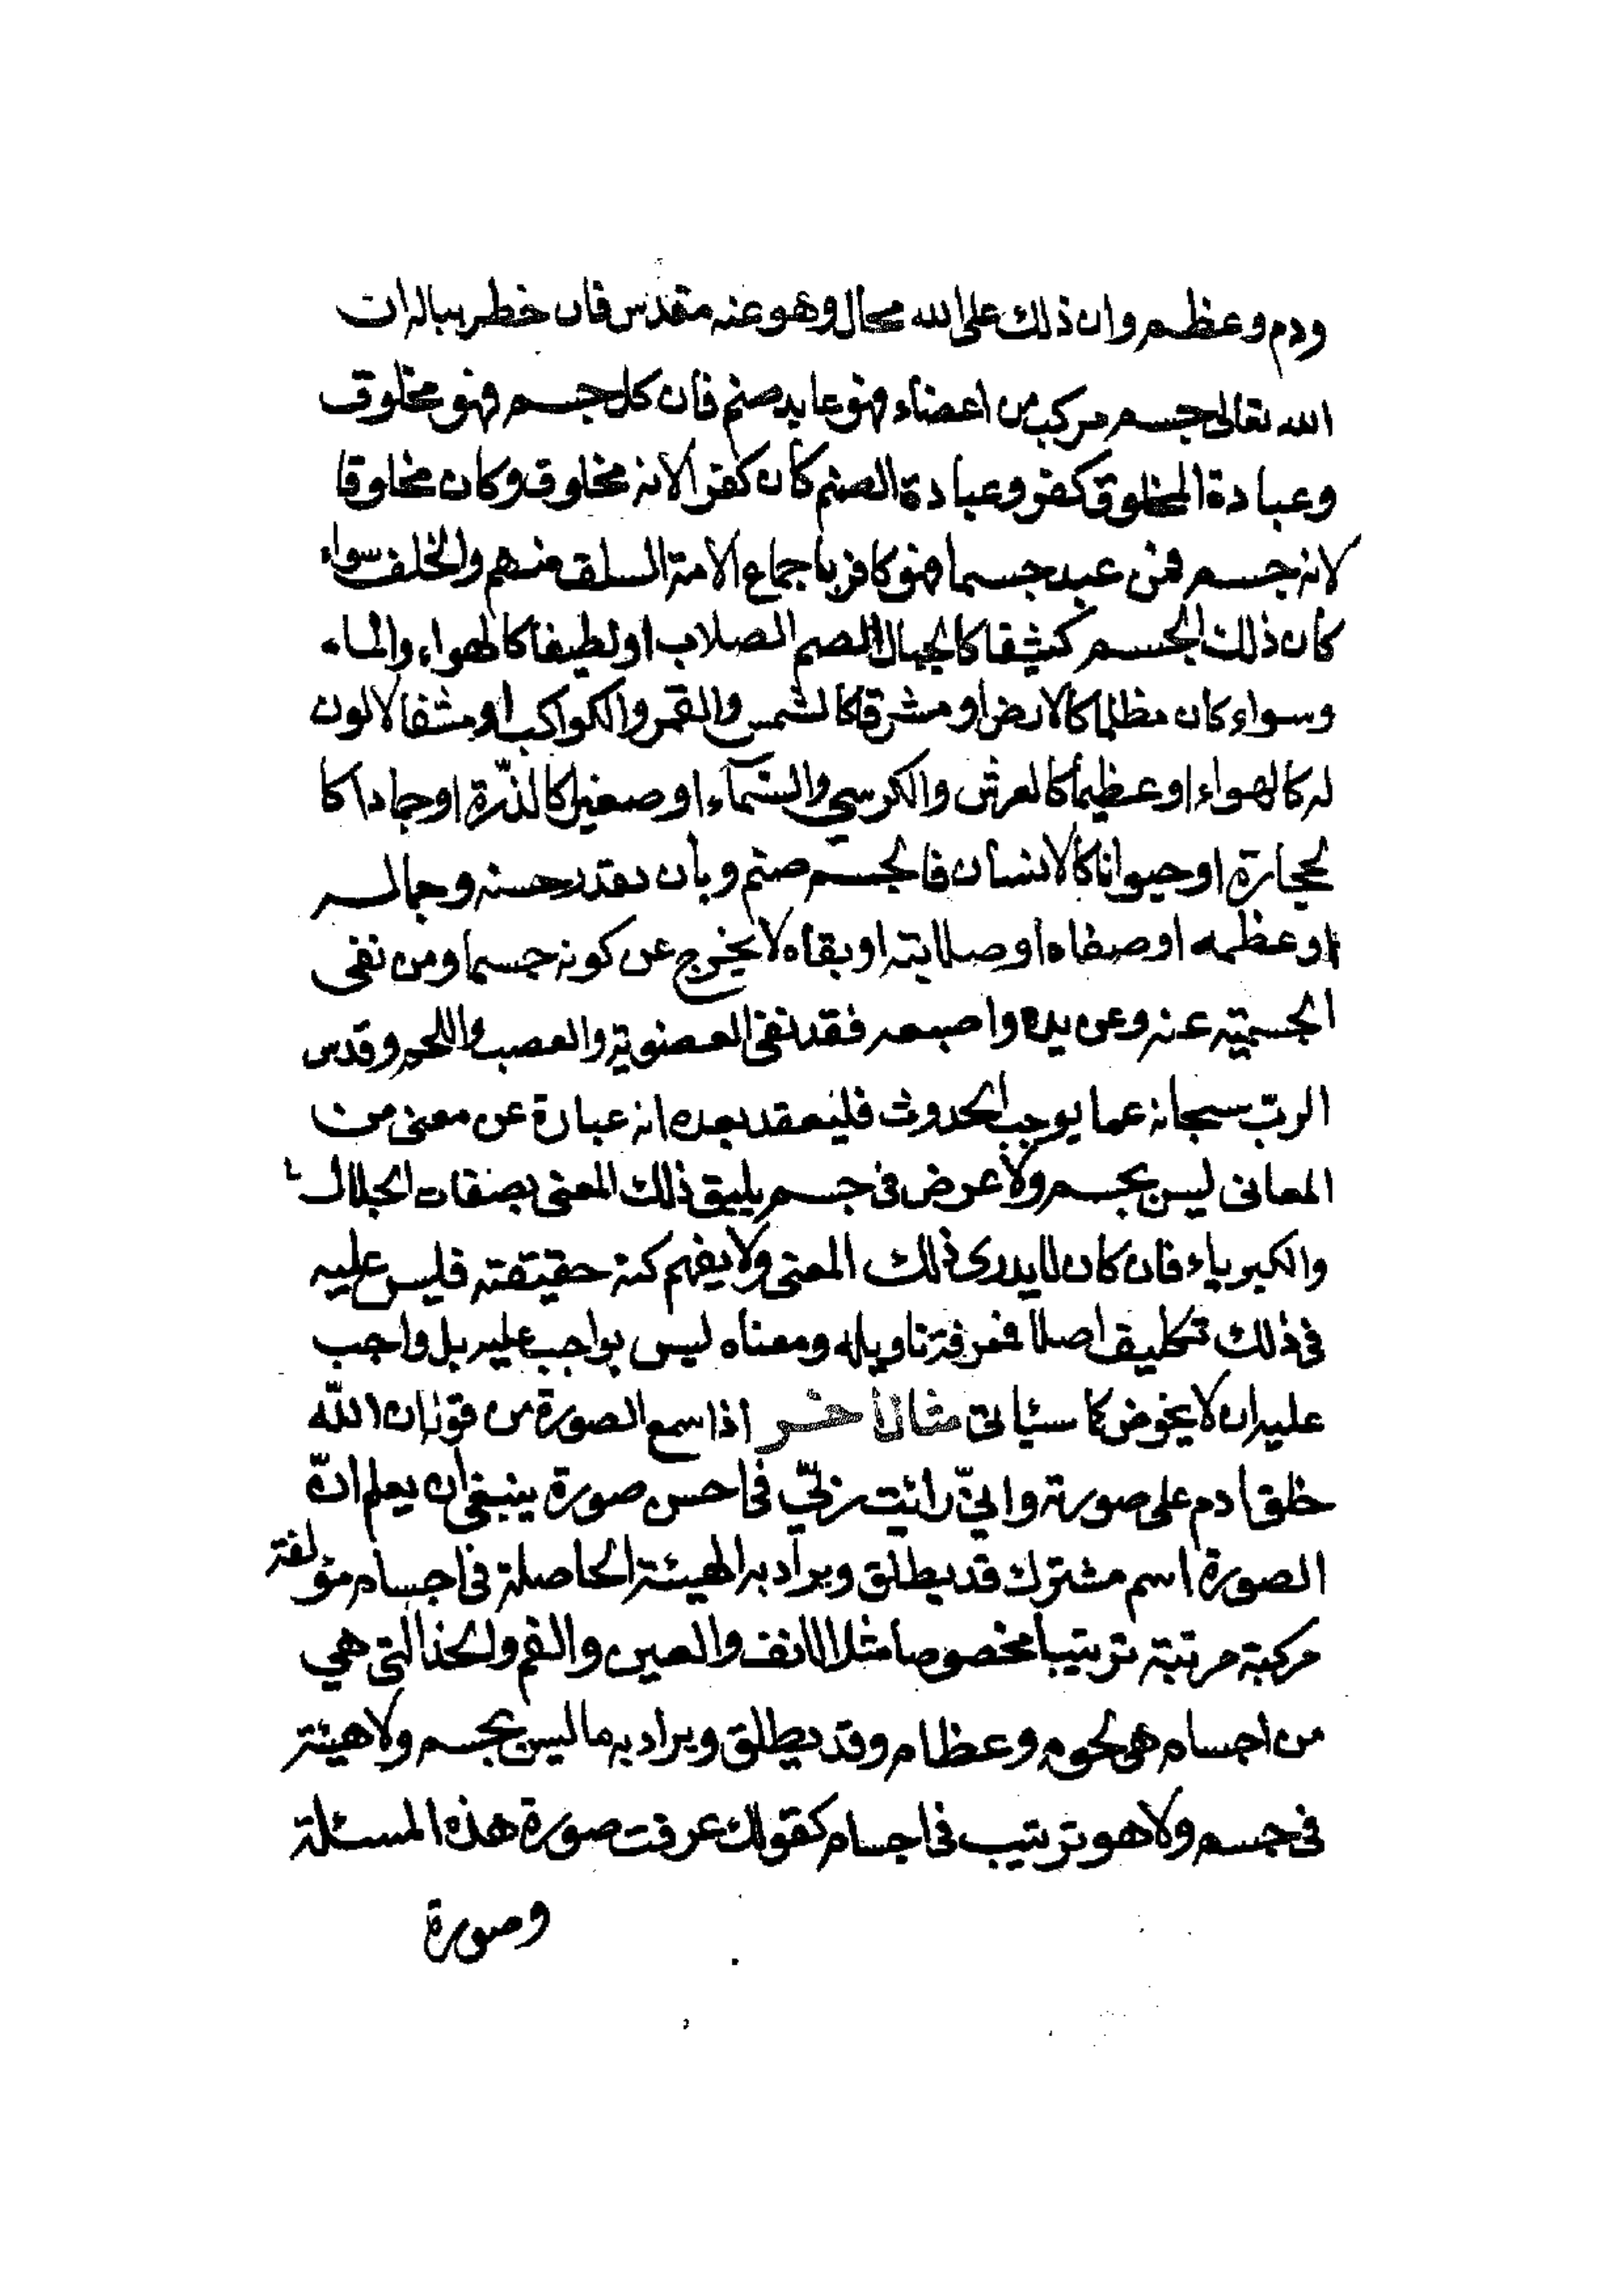 ودم وعظم وان ذلك على الله محال وهو عنه مقدس فان خطر بباله ان
الله تعالى جسم مركب من اعضاء فهو عابد صنم فان كل جسم فهو مخلوق
وعبادة المخلوق كفر وعبادة الصنم كان كفرا لانه مخلوق وكان مخلوقا
لانه جسم فمن عبد جسما فهو كافر باجماع الامة السلف منهم والخلف سواء
كان ذلك الجسم كثيفا كالجبال الصم الصلاب او لطيفا كالهواء والماء
وسواء كان مظلما كالارض او مشرقا كالشمس والقمر والكواكب او مشفا لا لون
له كالهواء او عظيما كالعرش والكرسي والسمآء او صغيرا كالذّرة او جمادا كا
لحجارة او حيوانا كالانسان فالجسم صنم وبان يقدر حسنه وجماله
او عظمه او صفاه او صلابته او بقاه لا يخرج عن كونه جسما ومن نفى
الجسميّة عنه وعن يده واصبعه فقد نفى العضوية والعصب واللحم وقدس
الربّ سبحانه عما يوجب الحدوث فليعقد بعده انه عبارة عن معنى من
المعانى ليس بجسم ولا عرض فى جسم يليق ذلك المعنى بصفات الجلال
والكبرياء فان كان لا يدرى ذلك المعنى ولا يفهم كنه حقيقته فليس عليه
فى ذلك تكليف اصلا فمعرفة تاويله ومعناه ليس بواجب عليه بل واجب
عليه ان لا يخوض كما سيأتى مثال اخر اذا سمع الصورة من قوله ان الله
خلق ادم على صورته وانيّ رائيت ربيّ فى احسن صورة ينبغى ان يعلم انّ
الصورة اسم مشترك قد يطلق ويراد به الهيئة الحاصلة فى اجسام مؤلفة
مركبة مرتبة ترتيبا مخصوصا مثلا الانف والعين والفم والخذ التى هي
من اجسام هى لحوم وعظام وقد يطلق ويراد به ما ليس بجسم ولا هيئة
فى جسم ولا هو ترتيب فى اجسام كقولك عرفت صورة هذه المسئلة
وصورة